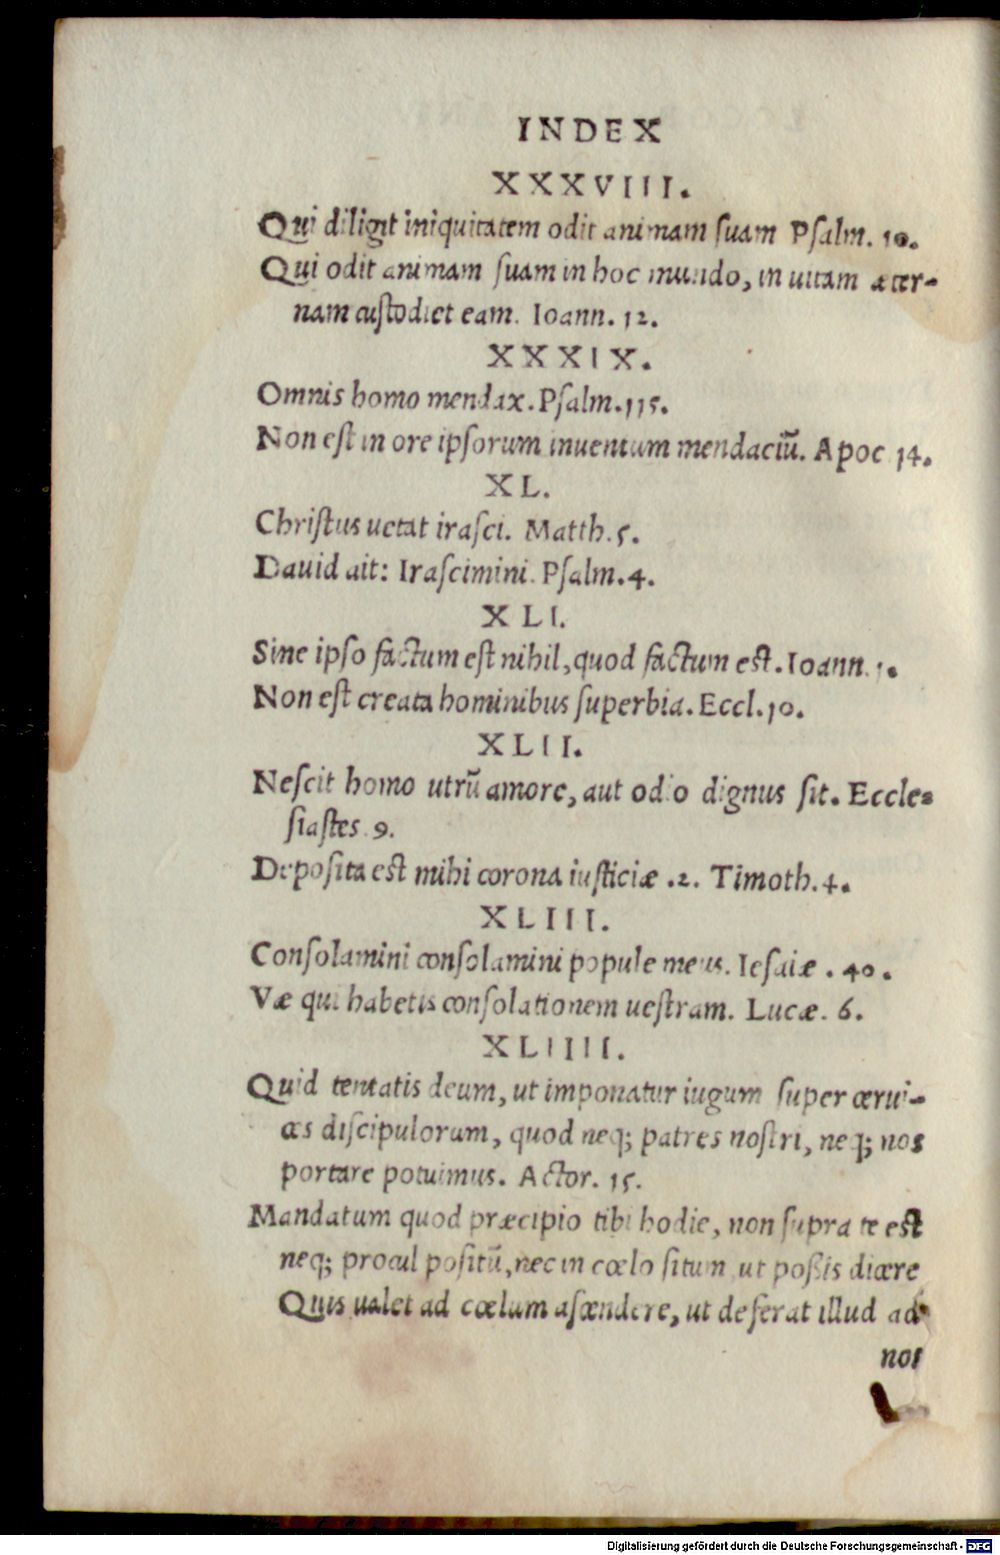 INDEX
XXXVIII.
Qui diligit iniquitatem odit animam ſuam Pſalm. 10.
Qui odit animam ſuam in hoc mundo, in uitam æter-
nam cuſtodiet eam. Ioann. 12.
XXXIX.
Omnis homo mendax. Pſalm. 115.
Non eſt in ore ipſorum inuentum mendaciū. Apoc 14.
XL.
Chriſtus uetat iraſci. Matth. 5.
Dauid ait: Iraſcimini. Pſalm. 4.
XLI.
Sine ipſo factum eſt nihil, quod factum eſt. Ioann. 1.
Non eſt creata hominibus ſuperbia. Eccl. 10.
XLII.
Neſcit homo utrū amore, aut odio dignus ſit. Eccle-
ſiaſtes 9.
Depoſita eſt mihi corona iuſticiæ .2. Timoth. 4.
XLIII.
Conſolamini conſolamini popule meus. Ieſaiæ . 40.
Væ qui habetis conſolationem ueſtram. Lucæ. 6.
XLIIII.
Quid tentatis deum, ut imponatur iugum ſuper cerui-
ces diſcipulorum, quod neq; patres noſtri, neq; nos
portare potuimus. Actor. 15.
Mandatum quod præcipio tibi hodie, non ſupra te eſt
neq; procul poſitū, nec in cœlo ſitum ut poßis dicere
Quis ualet ad cœlum aſcendere, ut deferat illud ad
nos
Digitalisierung gefördert durch die Deutsche Forschungsgemeinschaft - DFG